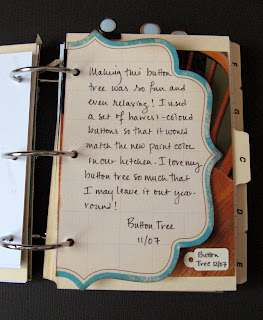 Making this button
tree was so fun and
even relaxing! I used
a set of harvest-colored
buttons so that it would
match the new paint color
in our kitchen. I love my
button tree so much that
I may leave it out year-
round!
Button Tree
11/07
Button
Tree 12/07
F
G
C
D
E